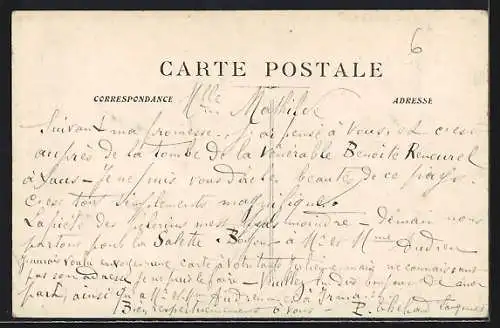 6
CARTE POSTALE
CORRESPONDANCE
ADRESSE
Mlle Mathilde
Suivant ma promesse, j'ai pensé à vous, et c'est
auprès de la tombe de la Vénérable Benoîte Rencurel
à Laus - Je ne puis vous dire la beauté de ce pays.
c'est tout simplement magnifique.
La piété des pèlerins n'est pas moindre. Demain nous
partons pour la Salette. Bonjour à Mr et Mme
J'aurais voulu envoyer une carte à votre tante mais ne connaissant
pas son adresse je ne puis le faire - Veuillez lui dire bonjour de ma
part, ainsi qu'à Mr et Mme
Bien respectueusement à vous -